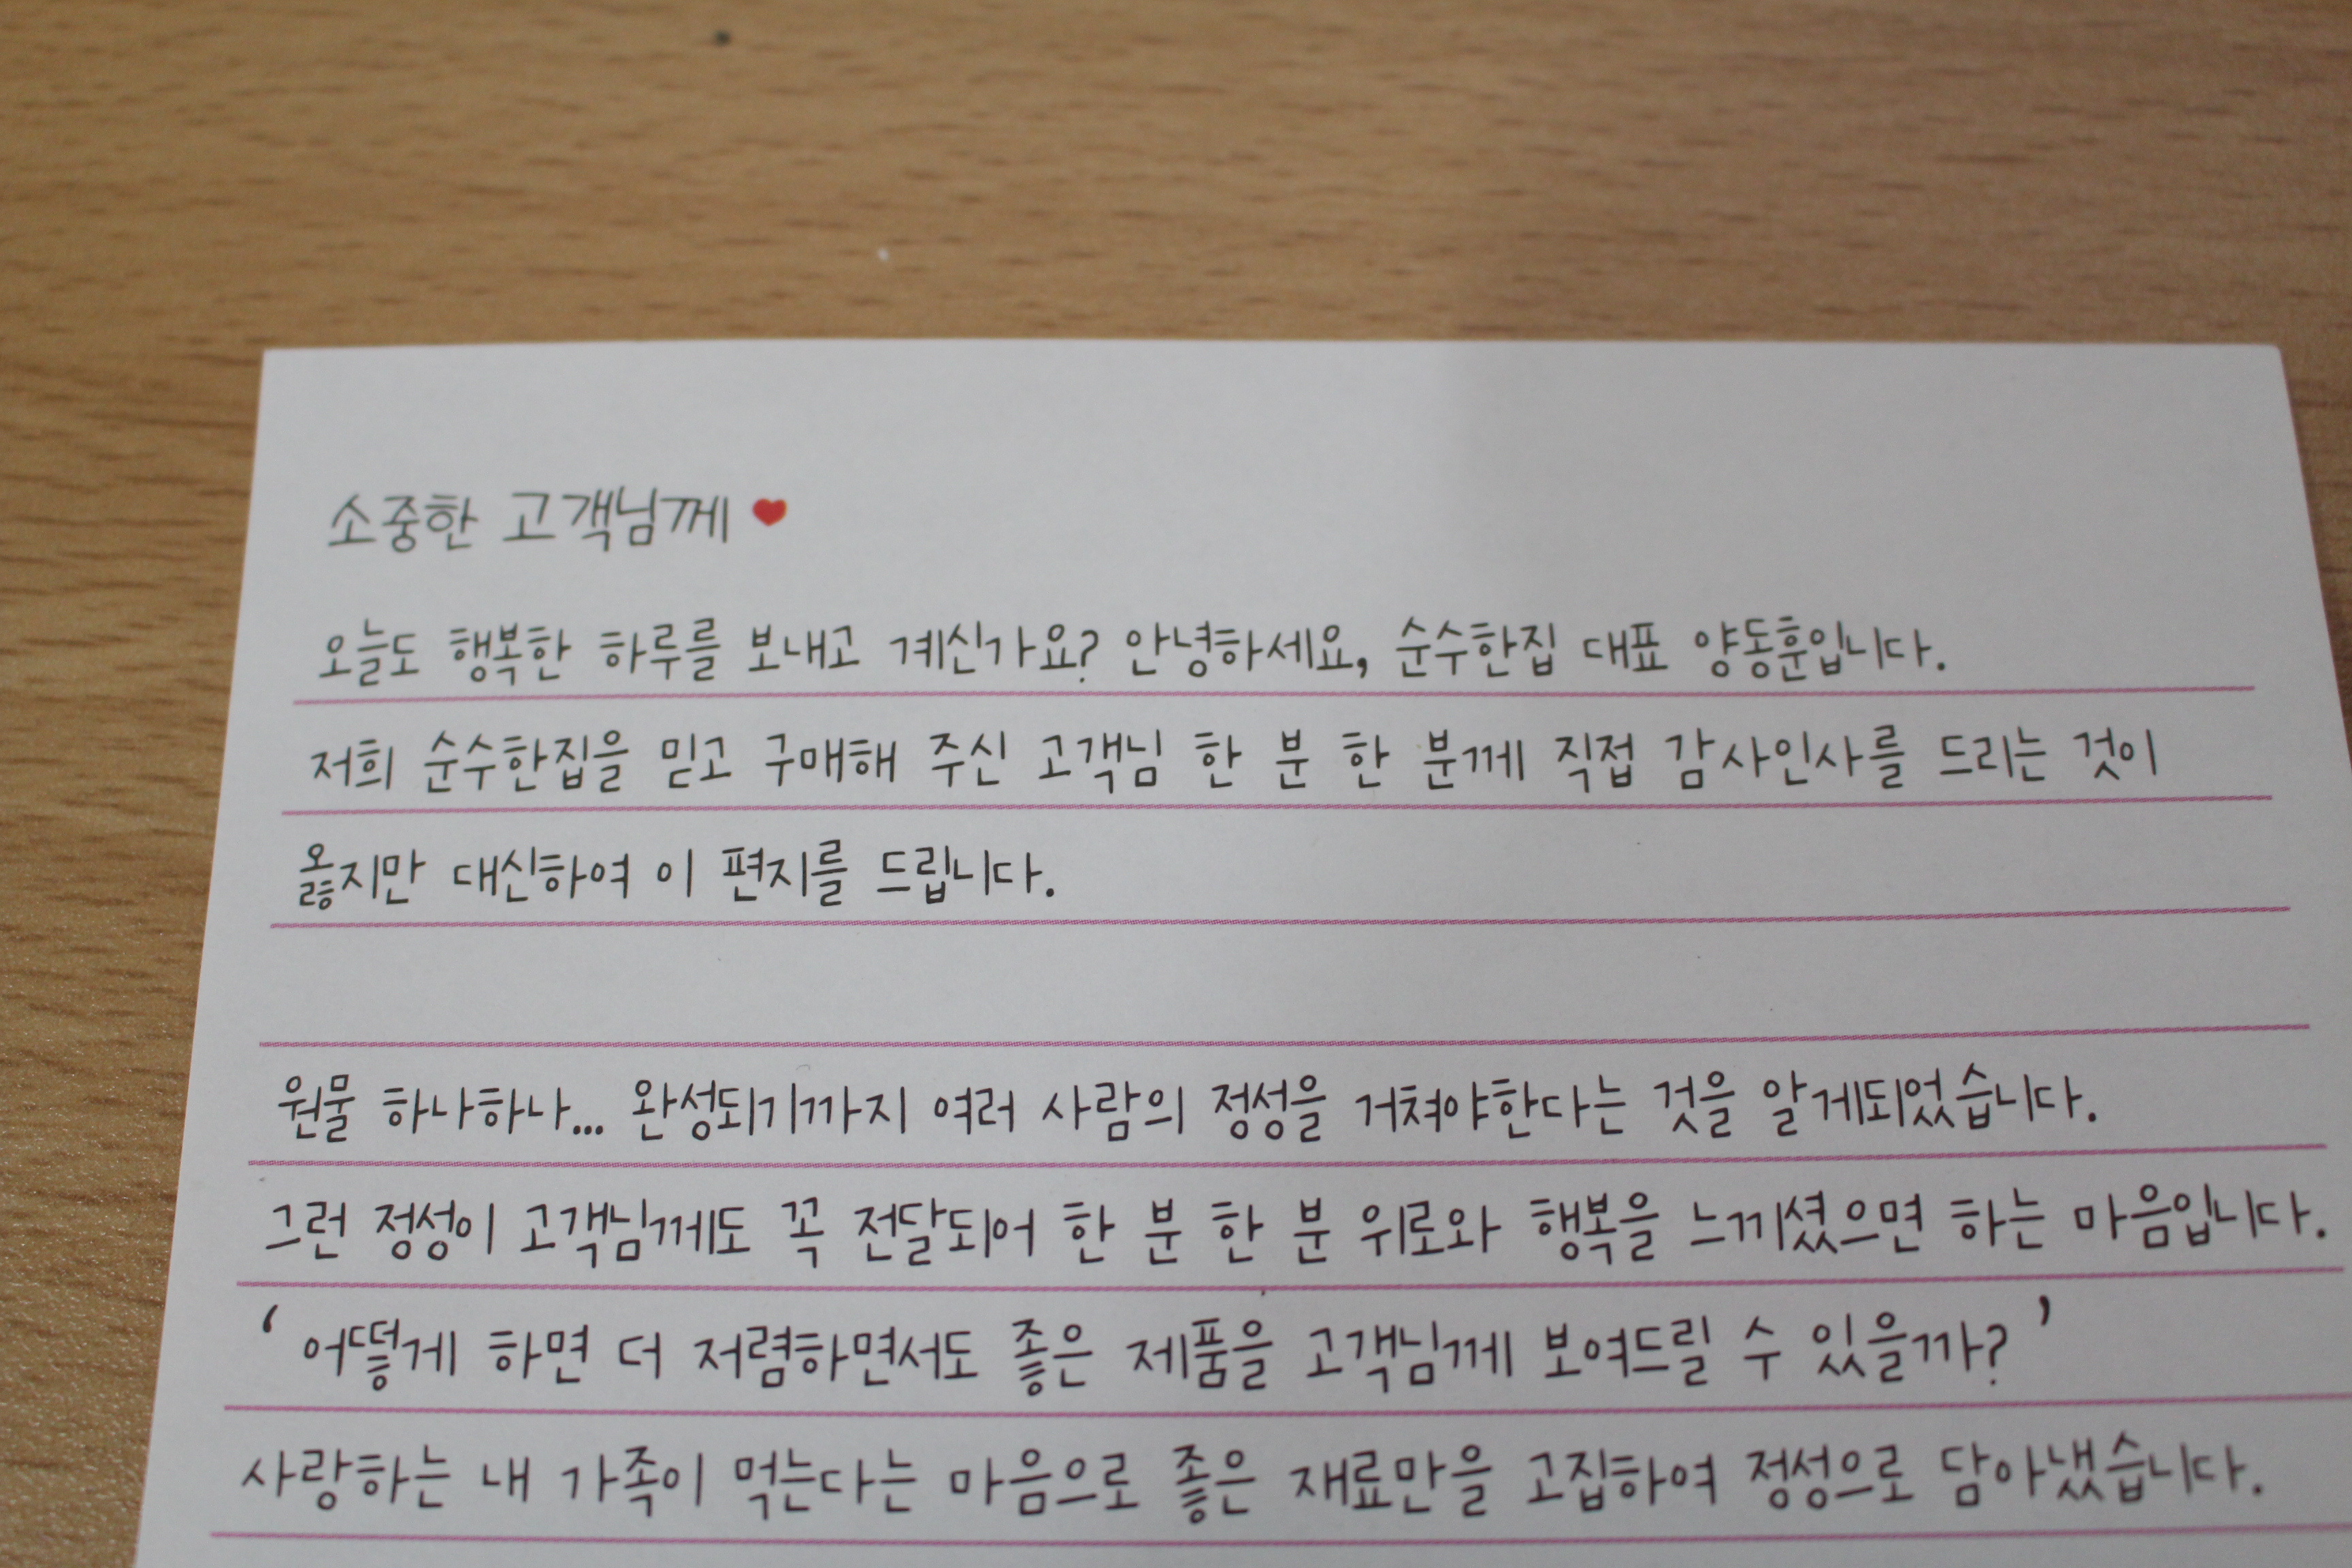 소중한 고객님께 ♥
오늘도 행복한 하루를 보내고 계신가요? 안녕하세요, 순수한집 대표 양동훈입니다.
저희 순수한집을 믿고 구매해 주신 고객님 한 분 한 분께 직접 감사인사를 드리는 것이
옳지만 대신하여 이 편지를 드립니다.
원물 하나하나... 완성되기까지 여러 사람의 정성을 거쳐야한다는 것을 알게되었습니다.
그런 정성이 고객님께도 꼭 전달되어 한 분 한 분 위로와 행복을 느끼셨으면 하는 마음입니다.
‘어떻게 하면 더 저렴하면서도 좋은 제품을 고객님께 보여드릴 수 있을까?’
사랑하는 내 가족이 먹는다는 마음으로 좋은 재료만을 고집하여 정성으로 담아냈습니다.